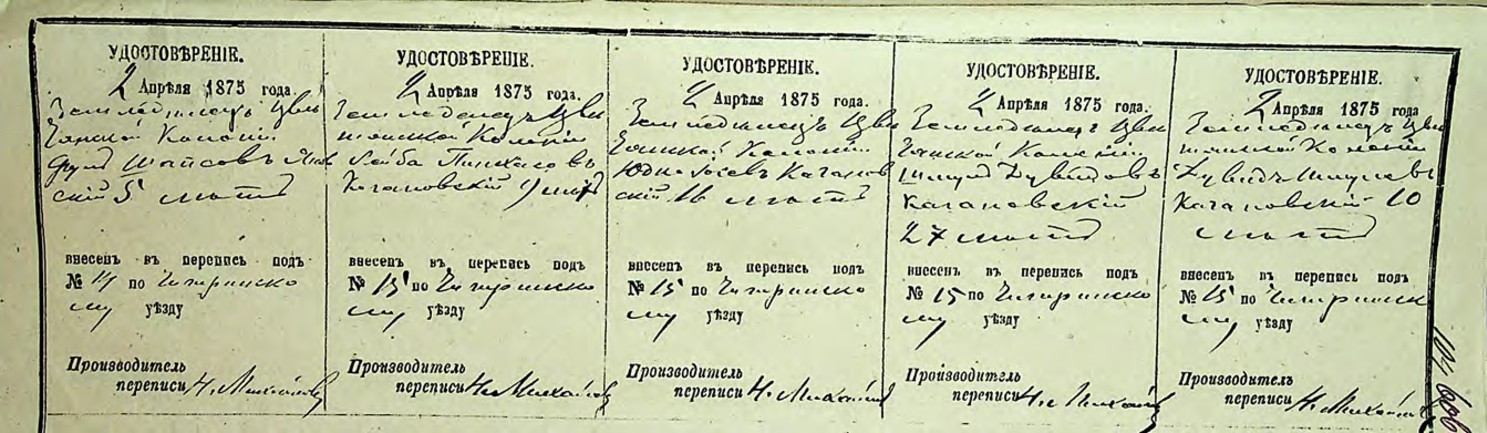 УДОСТОВѢРЕНІЕ.
2 Апрѣля 1875 года.
Земледѣлецъ Цвѣт
колоніи
Шапсовъ
скій 5 лѣтъ
внесенъ въ перепись подъ
№ 14 по Чигиринско
му уѣзду
Производитель
переписи Н. Михайловъ
УДОСТОВѢРЕНІЕ.
2 Апрѣля 1875 года.
Земледѣлецъ
колоніи
Лейба Пинхасовъ
Кагановскій 9 лѣтъ
внесенъ въ перепись подъ
№ 15 по Чигиринско
му уѣзду
Производитель
переписи Н. Михайловъ
УДОСТОВѢРЕНІЕ.
2 Апрѣля 1875 года.
Земледѣлецъ
колоніи
Юдка Іосевъ Каганов
скій 16 лѣтъ
внесенъ въ перепись подъ
№ 15 по Чигиринско
му уѣзду
Производитель
переписи Н. Михайловъ
УДОСТОВѢРЕНІЕ.
2 Апрѣля 1875 года.
Земледѣлецъ
колоніи
Шмуль Дувидовъ
Кагановскій
27 лѣтъ
внесенъ въ перепись подъ
№ 15 по Чигиринско
му уѣзду
Производитель
переписи Н. Михайловъ
УДОСТОВѢРЕНІЕ.
2 Апрѣля 1875 года
Земледѣлецъ
колоніи
Дувидъ Шмулевъ
Кагановскій 10
лѣтъ
внесенъ въ перепись подъ
№ 15 по Чигиринск
му уѣзду
Производитель
переписи Н. Михайловъ